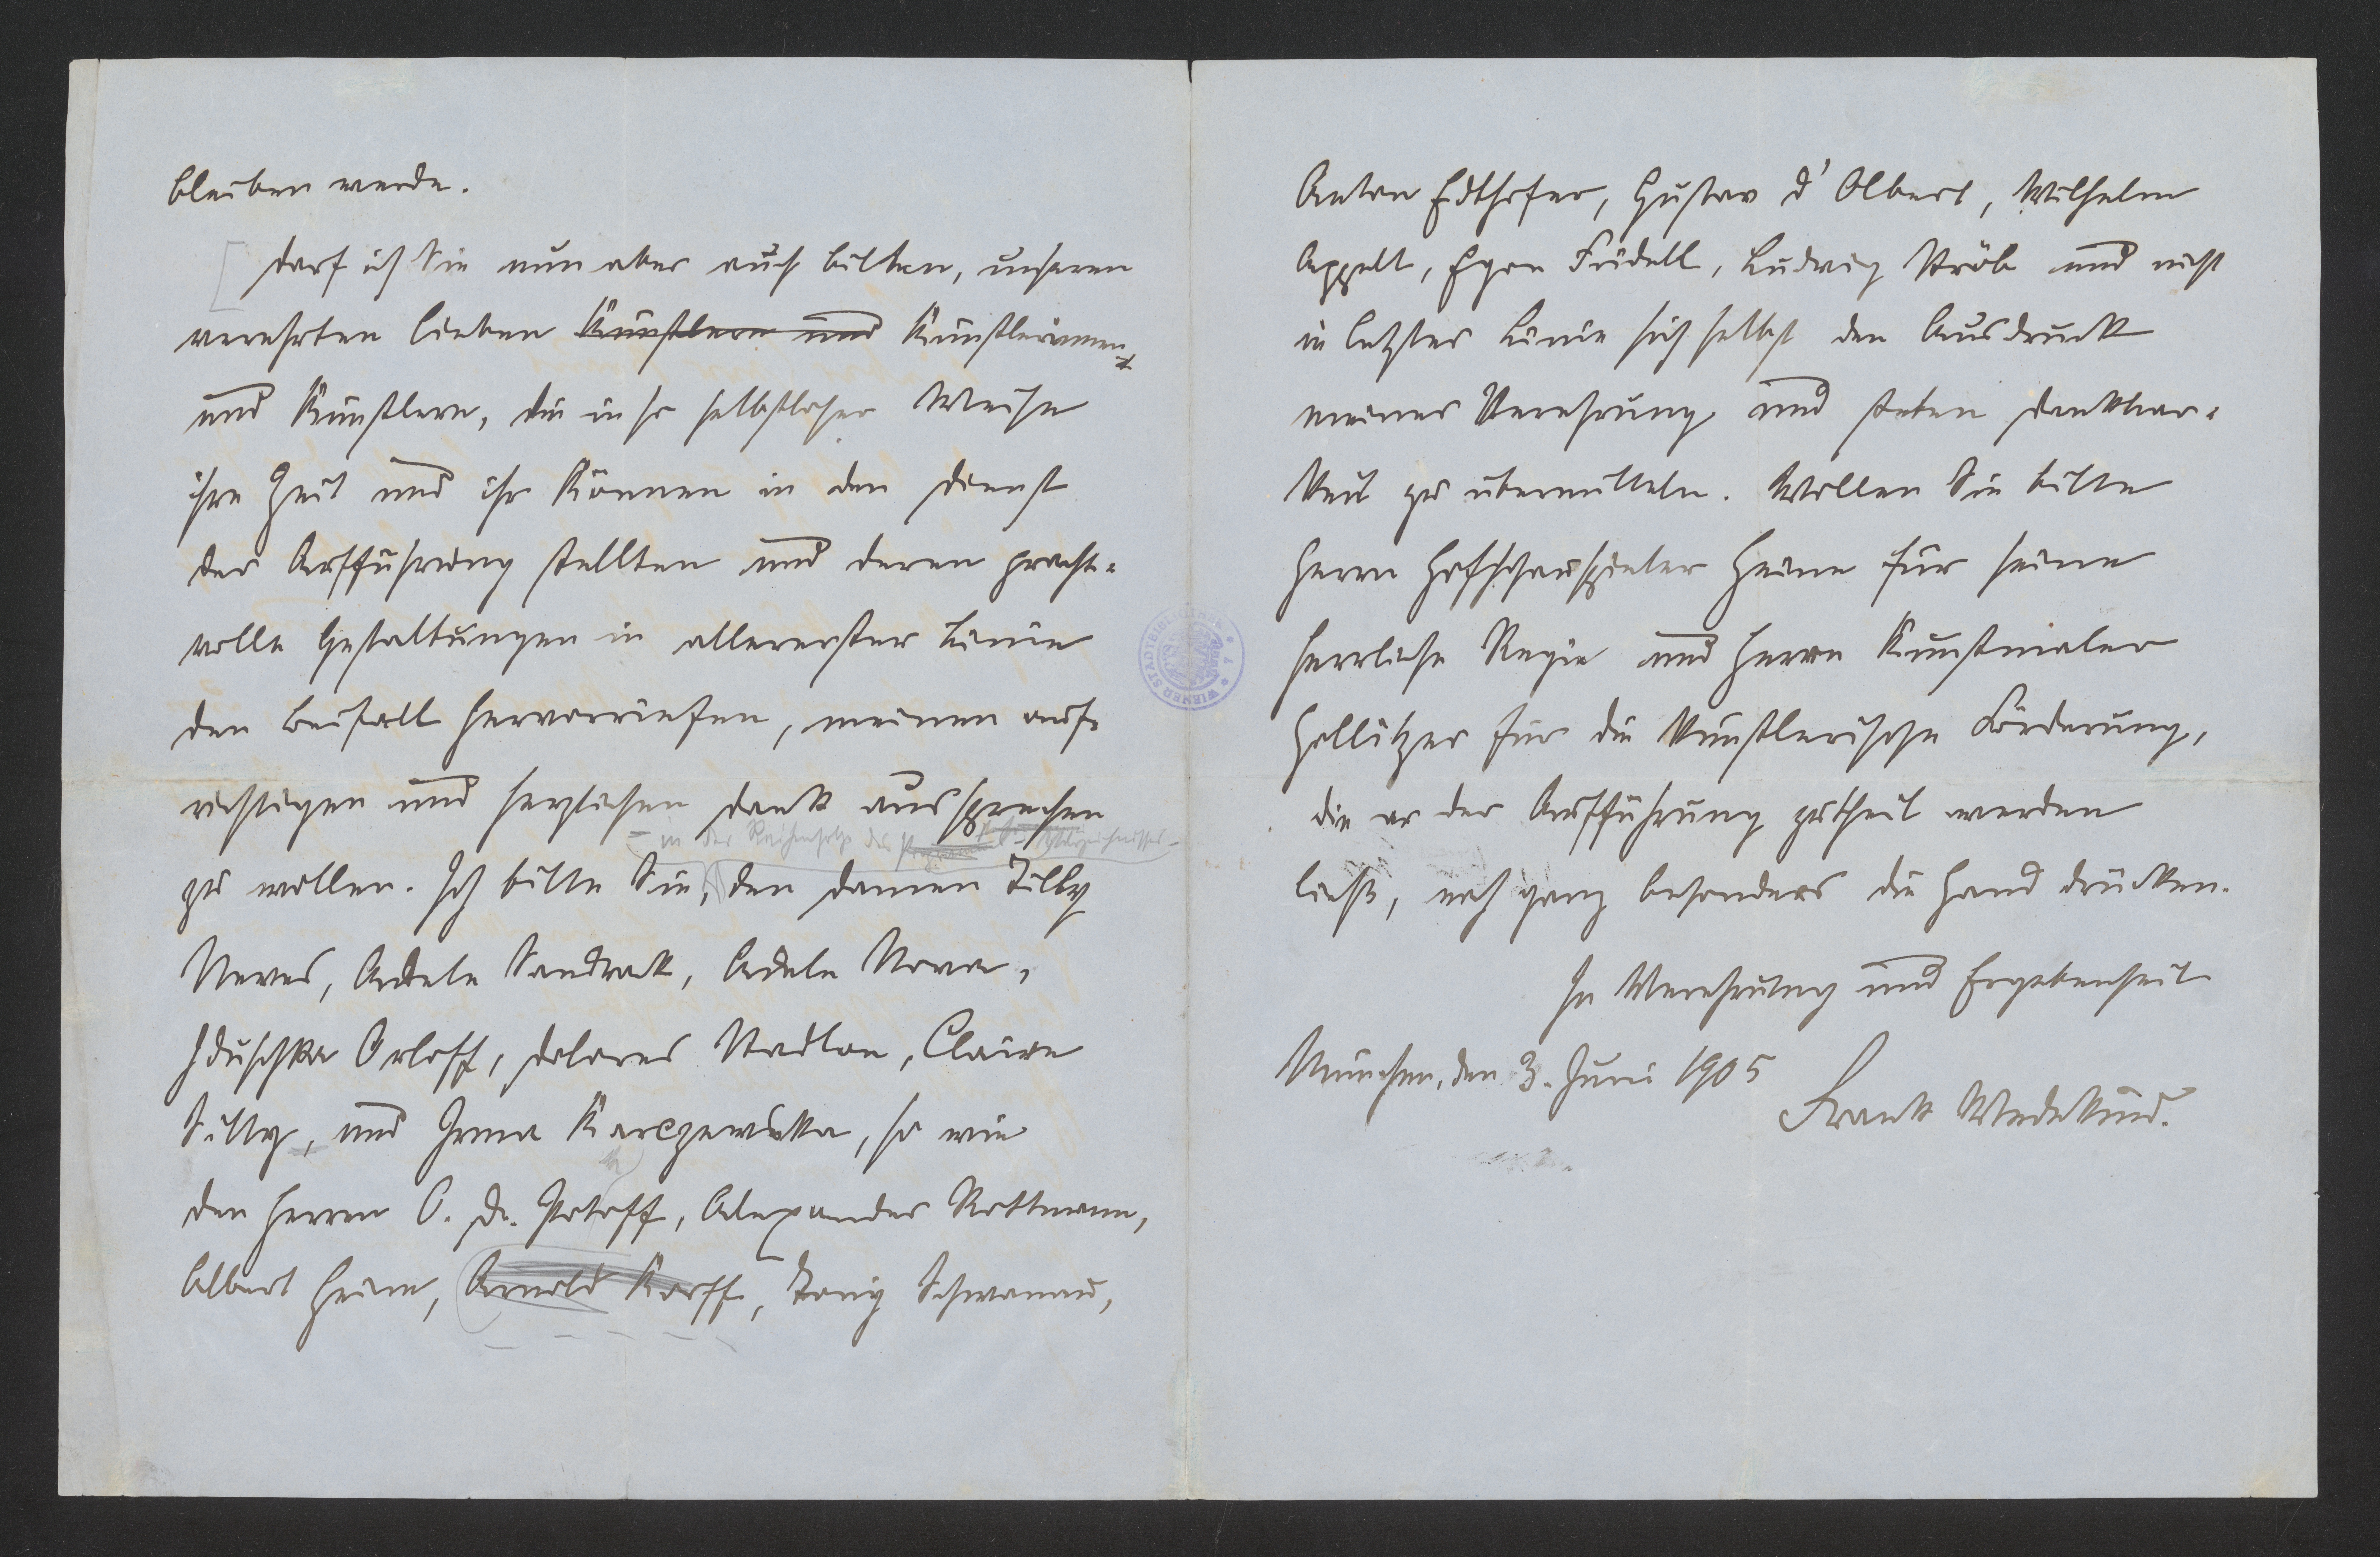 bleiben werde.
Darf ich Sie nun aber auch bitten, unseren
verehrten lieben Künstlern und Künstlerinnen
und Künstlern, die in so selbstloser Weise
ihre Zeit und ihr Können in den Dienst
der Aufführung stellten und deren pracht-
volle Gestaltungen in allererster Linie
den Beifall hervorriefen, meinen auf-
richtigen und herzlichen Dank aussprechen
– in der Reihenfolge des Programm
zu wollen. Ich bitte Sie, den Damen Tilly
Newes, Adele Sandrock, Adele Nova,
Iduschka Orloff, Dolores Stadlon, Claire
Sitty, und Irma Karczewska, so wie
den Herren O. D. Potoff, Alexander Rottmann,
Albert Heine, Arnold Korff, Tony Schwanau,
Anton Edthofer, Gustav d'Olbert, Wilhelm
Appelt, Egon Fridell, Ludwig Ströb und nicht
in letzter Linie sich selbst den Ausdruck
meiner Verehrung und steten Dankbar-
keit zu übermitteln. Wollen Sie bitte
Herrn Hofschauspieler Heine für seine
herrliche Regie und Herrn Kunstmaler
Hollitzer für die künstlerische Förderung,
die er der Aufführung zutheil werden
ließ, noch ganz besonders die Hand drücken.
In Verehrung und Ergebenheit
München, den 3. Juni 1905
Frank Wedekind.
WIENER STADTBIBLIOTHEK